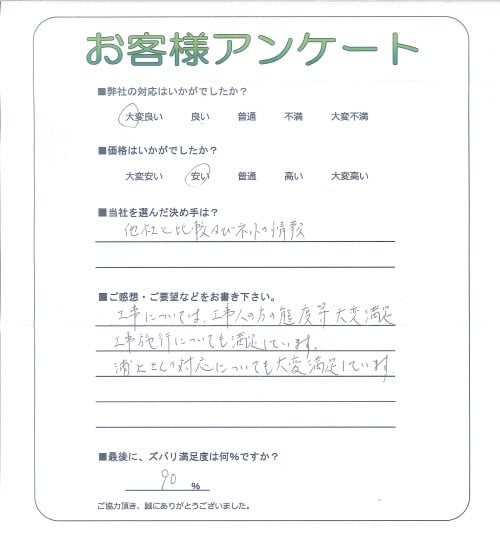 お客様アンケート
■弊社の対応はいかがでしたか？
大変良い 良い 普通 不満 大変不満
■価格はいかがでしたか？
大変安い 安い 普通 高い 大変高い
■当社を選んだ決め手は？
他社と比較及びネットの情報
■ご感想・ご要望などをお書き下さい。
工事については、工事人の方の態度等大変満足
工事施行についても満足しています。
浦上さんの対応についても大変満足しています.
■最後に、ズバリ満足度は何％ですか？
90 ％
ご協力頂き、誠にありがとうございました。